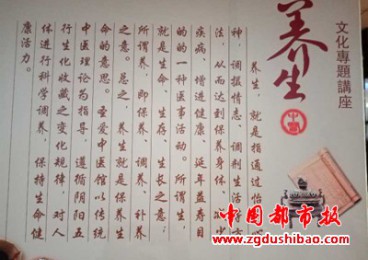 文化專題講座
养生
养生，就是指通过怡
神，调摄情志、调剂生活
法，从而达到保养身体、
疾病、增进健康、延年益寿目
的的一种医事活动。所谓生，
就是生命、生存、生长之意；
所谓养，即保养、调养、补养
之意。总之，养生就是保养生
命的意思。圣爱中医馆以传统
中医理论为指导，遵循阴阳五
行生化收藏之变化规律，对人
体进行科学调养，保持生命健
康活力。
中国都市报
www.zgdushibao.com